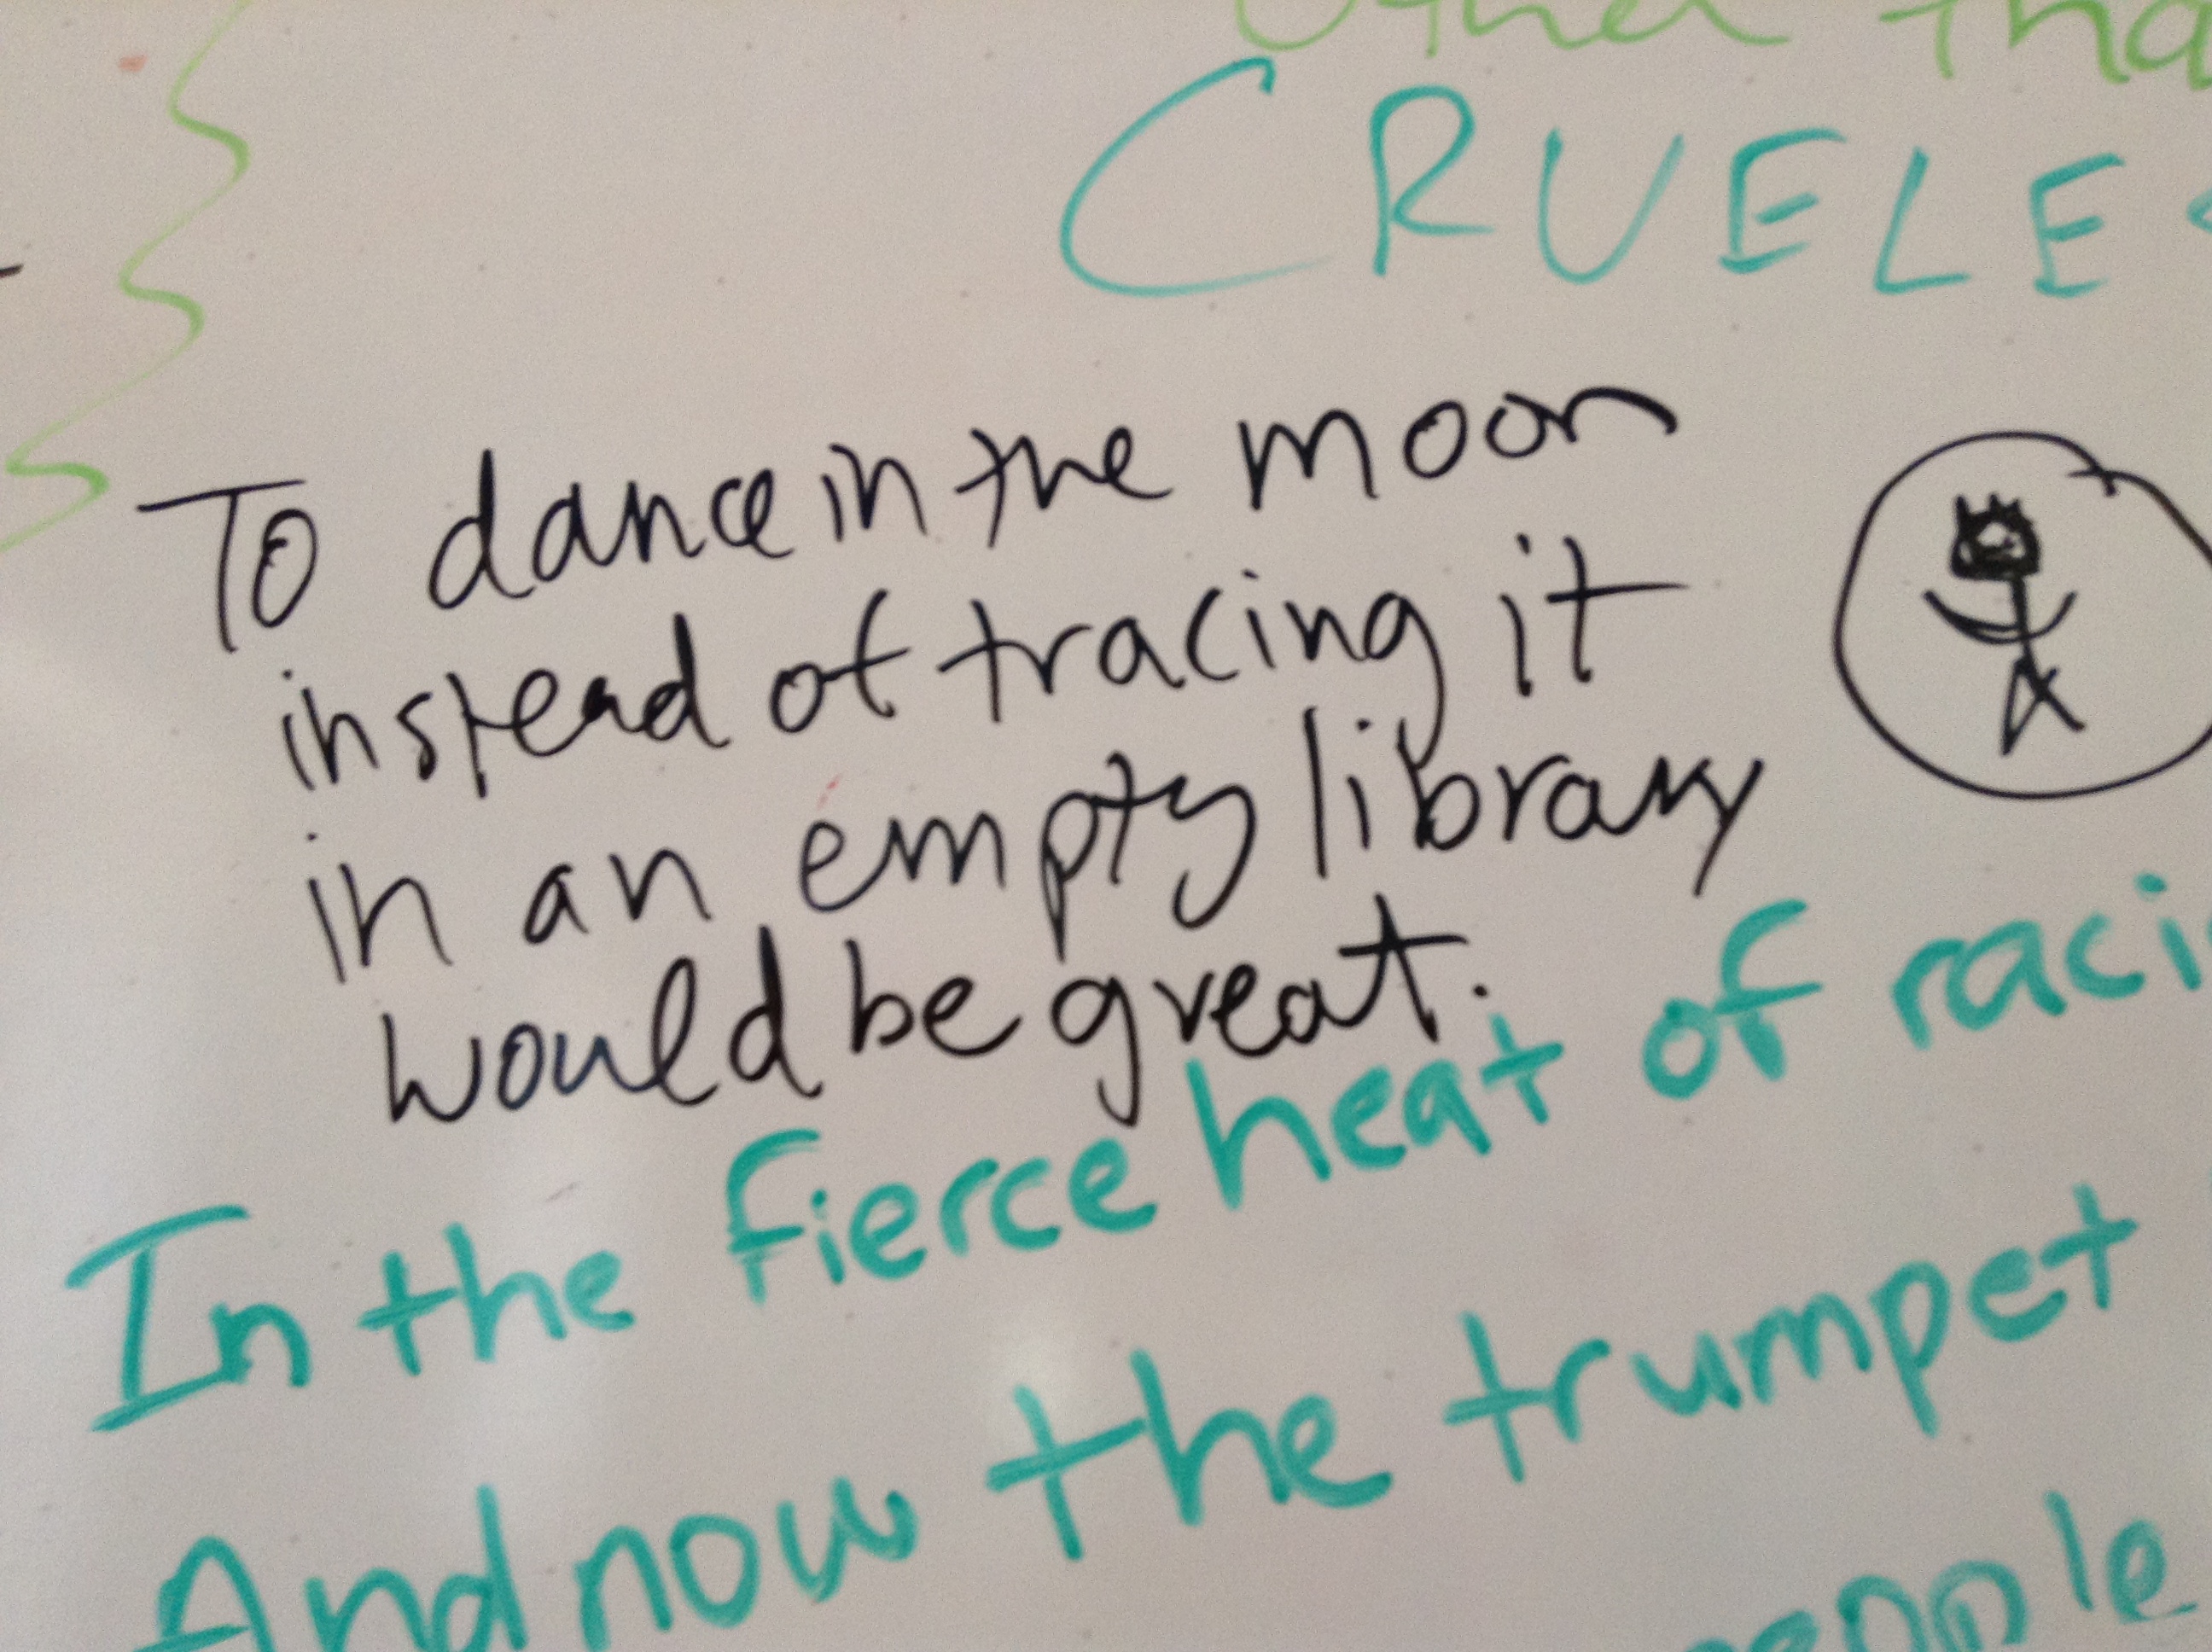 Other tha
CRUELES
To dance in the moon
instead of tracing it
in an empty library
would be great.
In the fierce heat of raci
And now the trumpet
people